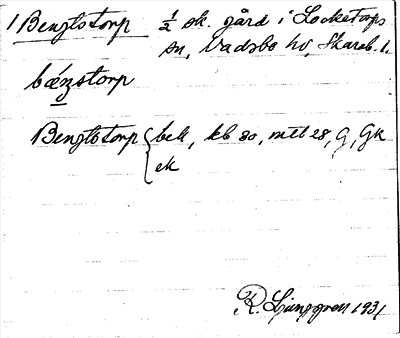 1 Bengtstorp ½ sk. gård i Locketorps
sn, Vadsbo hd, Skarab. l.
bæŋstorp
Bengtstorp { bek, kb 80, mtl 28, G, GK
ek
R. Ljunggren 1931